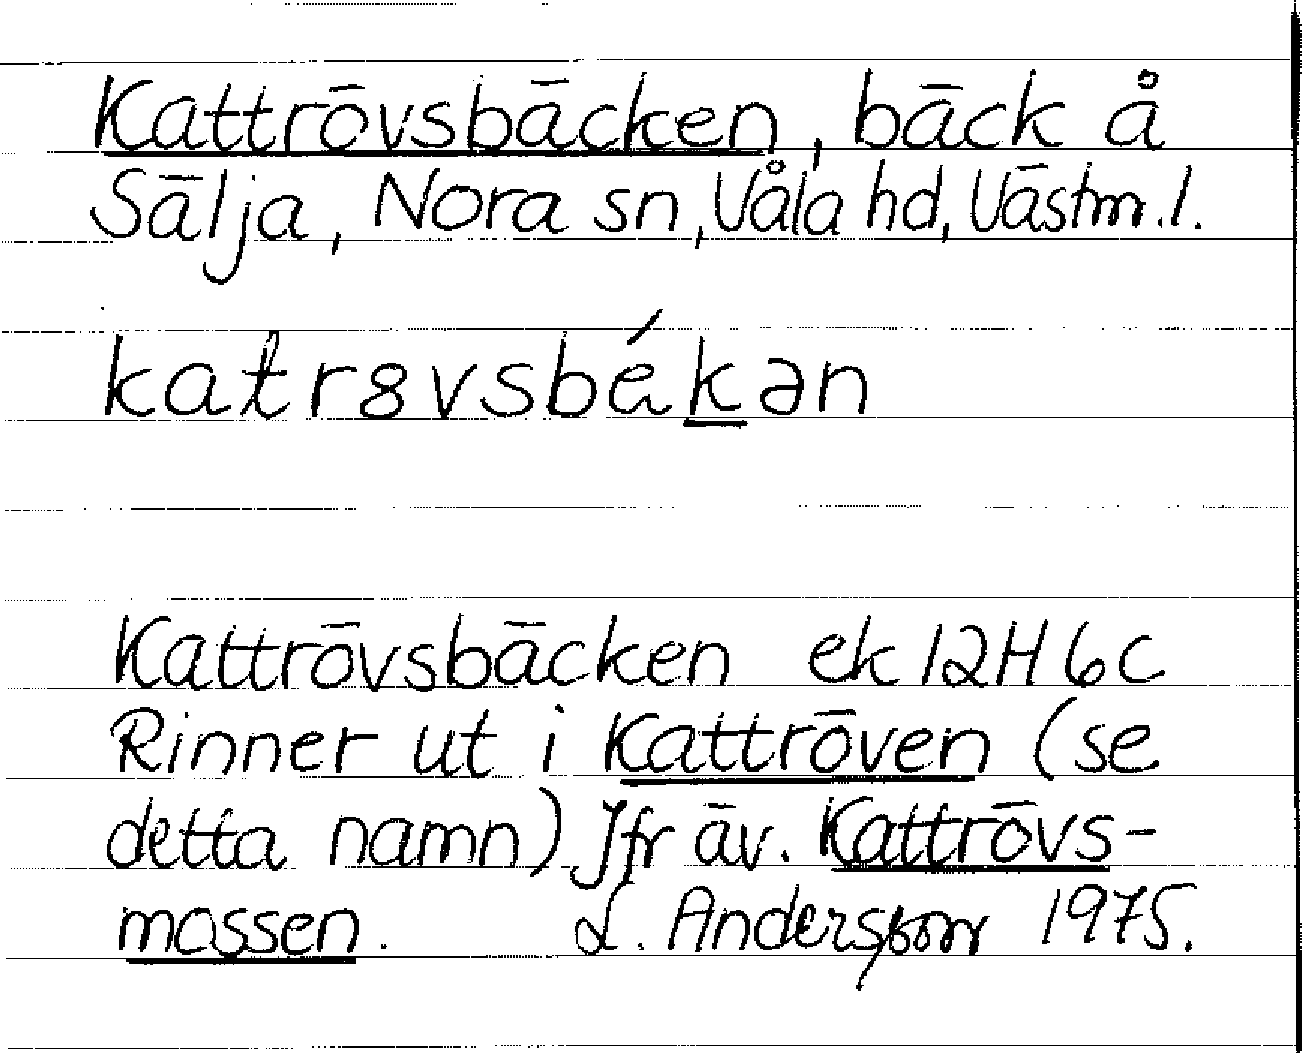 Kattrövsbäcken, bäck å
Sälja, Nora sn, Våla hd, Västm.l.
katrɞvsbékən
Kattrövsbäcken ek 12H6c
Rinner ut i Kattröven (se
detta namn) Jfr äv. Kattrövs-
mossen. L. Andersson 1975.